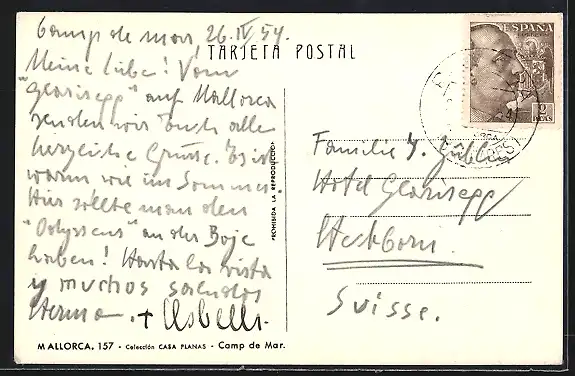 Camp de Mar, 26. IV 54.
TARJETA POSTAL
Meine Liebe! Vom
"Glarisegg" auf Mallorca
senden wir Euch alle
herzliche Grüsse. Es ist
warm wie im Sommer.
Hier sollte man den
"Odysseus" an der Boje
haben! Hasta la vista
y muchos saludos
ESPAÑA
2
PTAS
Familie
Hotel Glarisegg
Steckborn.
Suisse.
PROHIBIDA LA REPRODUCCION
MALLORCA. 157 - Colección CASA PLANAS - Camp de Mar.